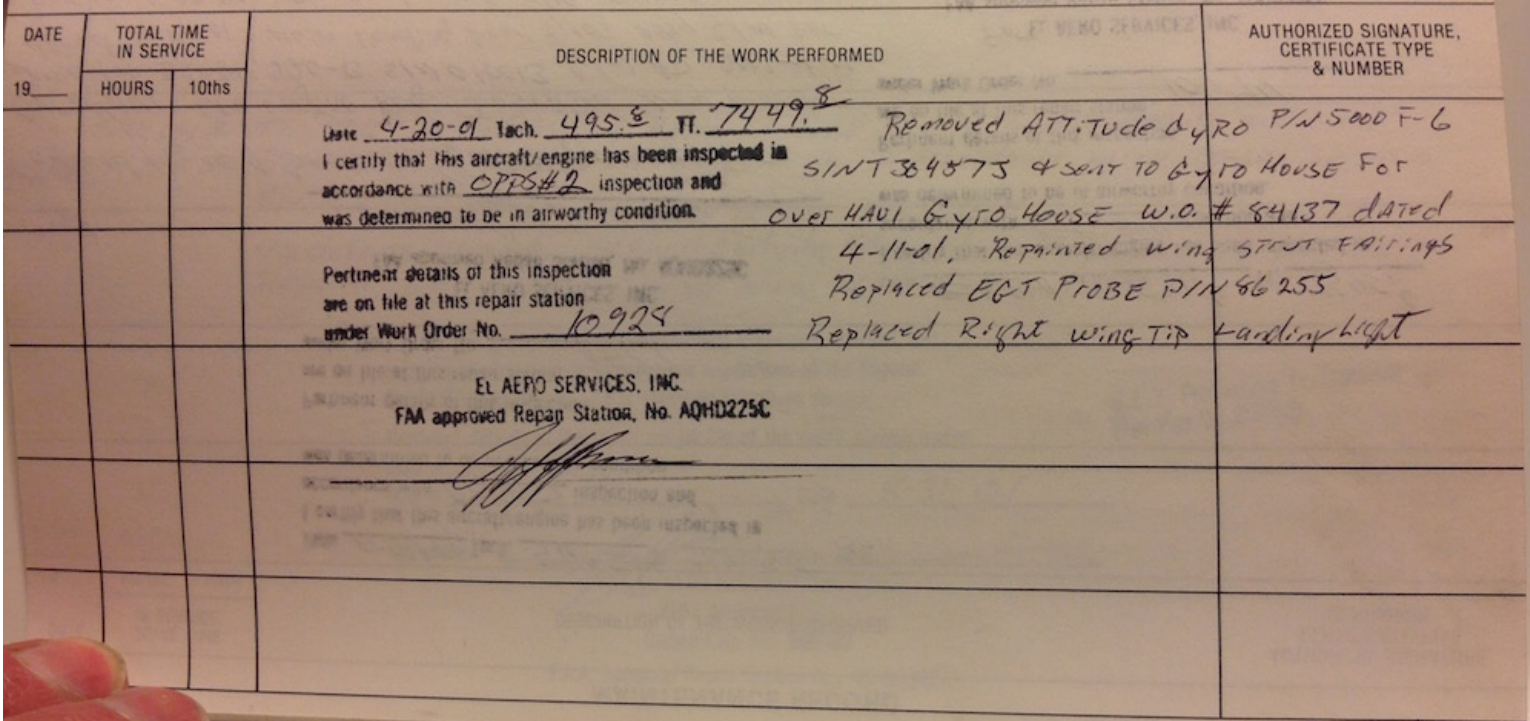 DATE
TOTAL TIME
IN SERVICE
DESCRIPTION OF THE WORK PERFORMED
AUTHORIZED SIGNATURE,
CERTIFICATE TYPE
& NUMBER
19___
HOURS
10ths
Date 4-20-01 Tach. 495.8 TT. 7449.8
I certify that this aircraft/engine has been inspected in
accordance with OPPS#2 inspection and
was determined to be in airworthy condition.
Pertinent details of this inspection
are on file at this repair station
under Work Order No. 10928
EL AERO SERVICES, INC.
FAA approved Repair Station, No. AQHD225C
Removed ATTiTude GyRO P/N 5000 F-6
S/N T30457J & SenT TO GyTO HOUSE For
Over HAUl GyrO HOUSE W.O. # 84137 dATed
4-11-01, Repainted Wing STruT FAirings
Replaced EGT ProBE P/N 86255
Replaced Right Wing Tip Landing Light